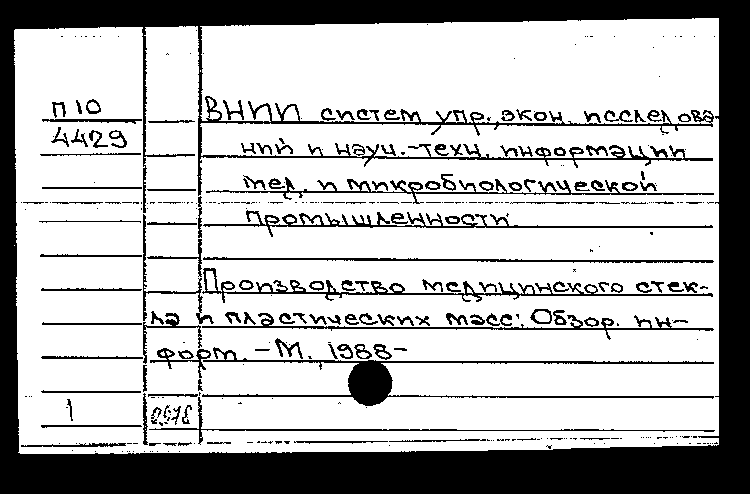 П10
4429
ВНИИ систем упр., экон. исследова-
ний и науч.-техн. информации
мед. и микробиологической
промышленности.
Производство медицинского стек-
ла и пластических масс: Обзор. ин-
форм. - М., 1988-
1